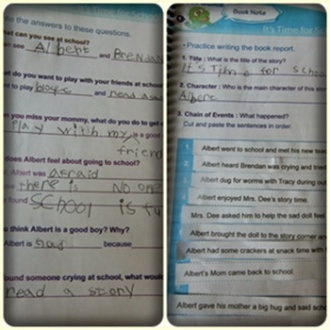 the answers to these questions.
at can you see at school?
see Albert and Brendan
t do you want to play with your friends at school
t to play and read
you miss your mommy, what do you do to get
Play with my is a good
friend
does Albert feel about going to school?
Albert was afraid
there is No one
found SCHOOL is fu
u think Albert is a good boy? Why?
Albert is because
ound someone crying at school, what would
read a story
Book Note
It's Time for Sc
Practice writing the book report.
1. Title : What is the title of the story?
It's Time for Scho
2. Character : Who is the main character of this stor
Albert
3. Chain of Events : What happened?
Cut and paste the sentences in order.
1. Albert want to school and met his new tea
2. Albert heard Brendan was crying and frien
3. Albert dug for worms with Tracy during out
4. Albert enjoyed Mrs. Dee's story time.
Mrs. Dee asked him to help the sad doll feel
Albert brought the doll to the story corner an
Albert had some crackers at snack time with
Albert's Mom came back to school.
Albert gave his mother a big hug and said sch